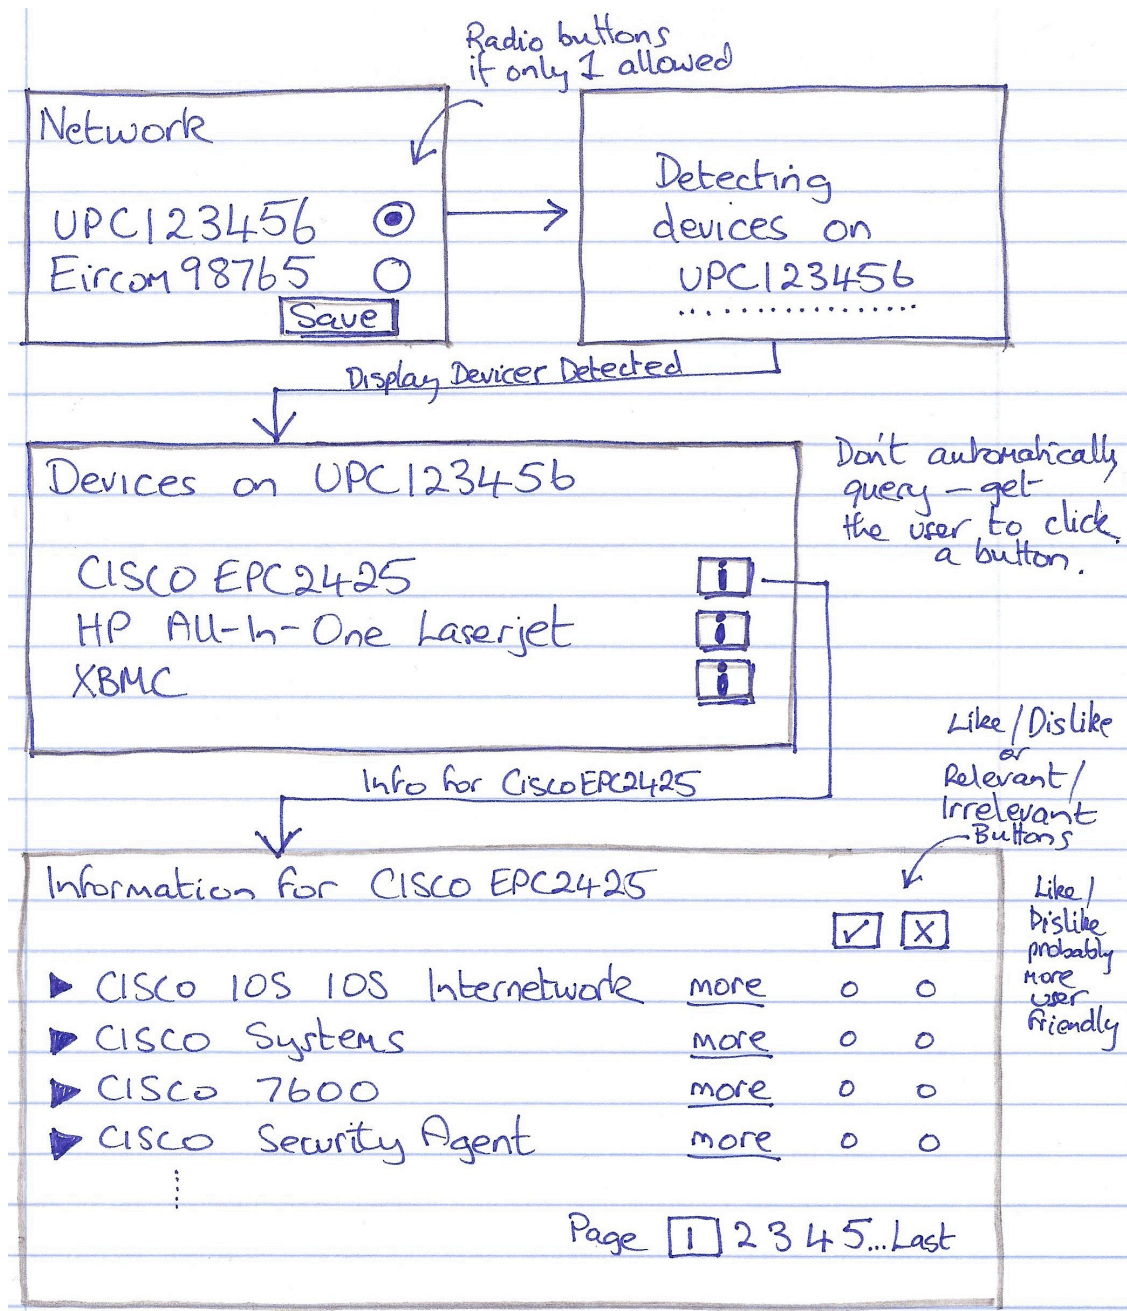 Radio buttons
if only 1 allowed
Network
UPC123456
Eircom98765
Save
Detecting
devices on
UPC123456
..............
Display Devicer Detected
Devices on UPC123456
CISCO EPC2425 i
HP All-In-One Laserjet i
XBMC i
Don't automatically
query – get
the user to click
a button.
Info for Cisco EPC2425
Like/Dislike
or
Relevant/
Irrelevant
Buttons
Information for CISCO EPC2425
✓ X
Like/
Dislike
probably
more
user
friendly
CISCO IOS IOS Internetwork more
CISCO Systems more
CISCO 7600 more
CISCO Security Agent more
Page 1 2 3 4 5...Last